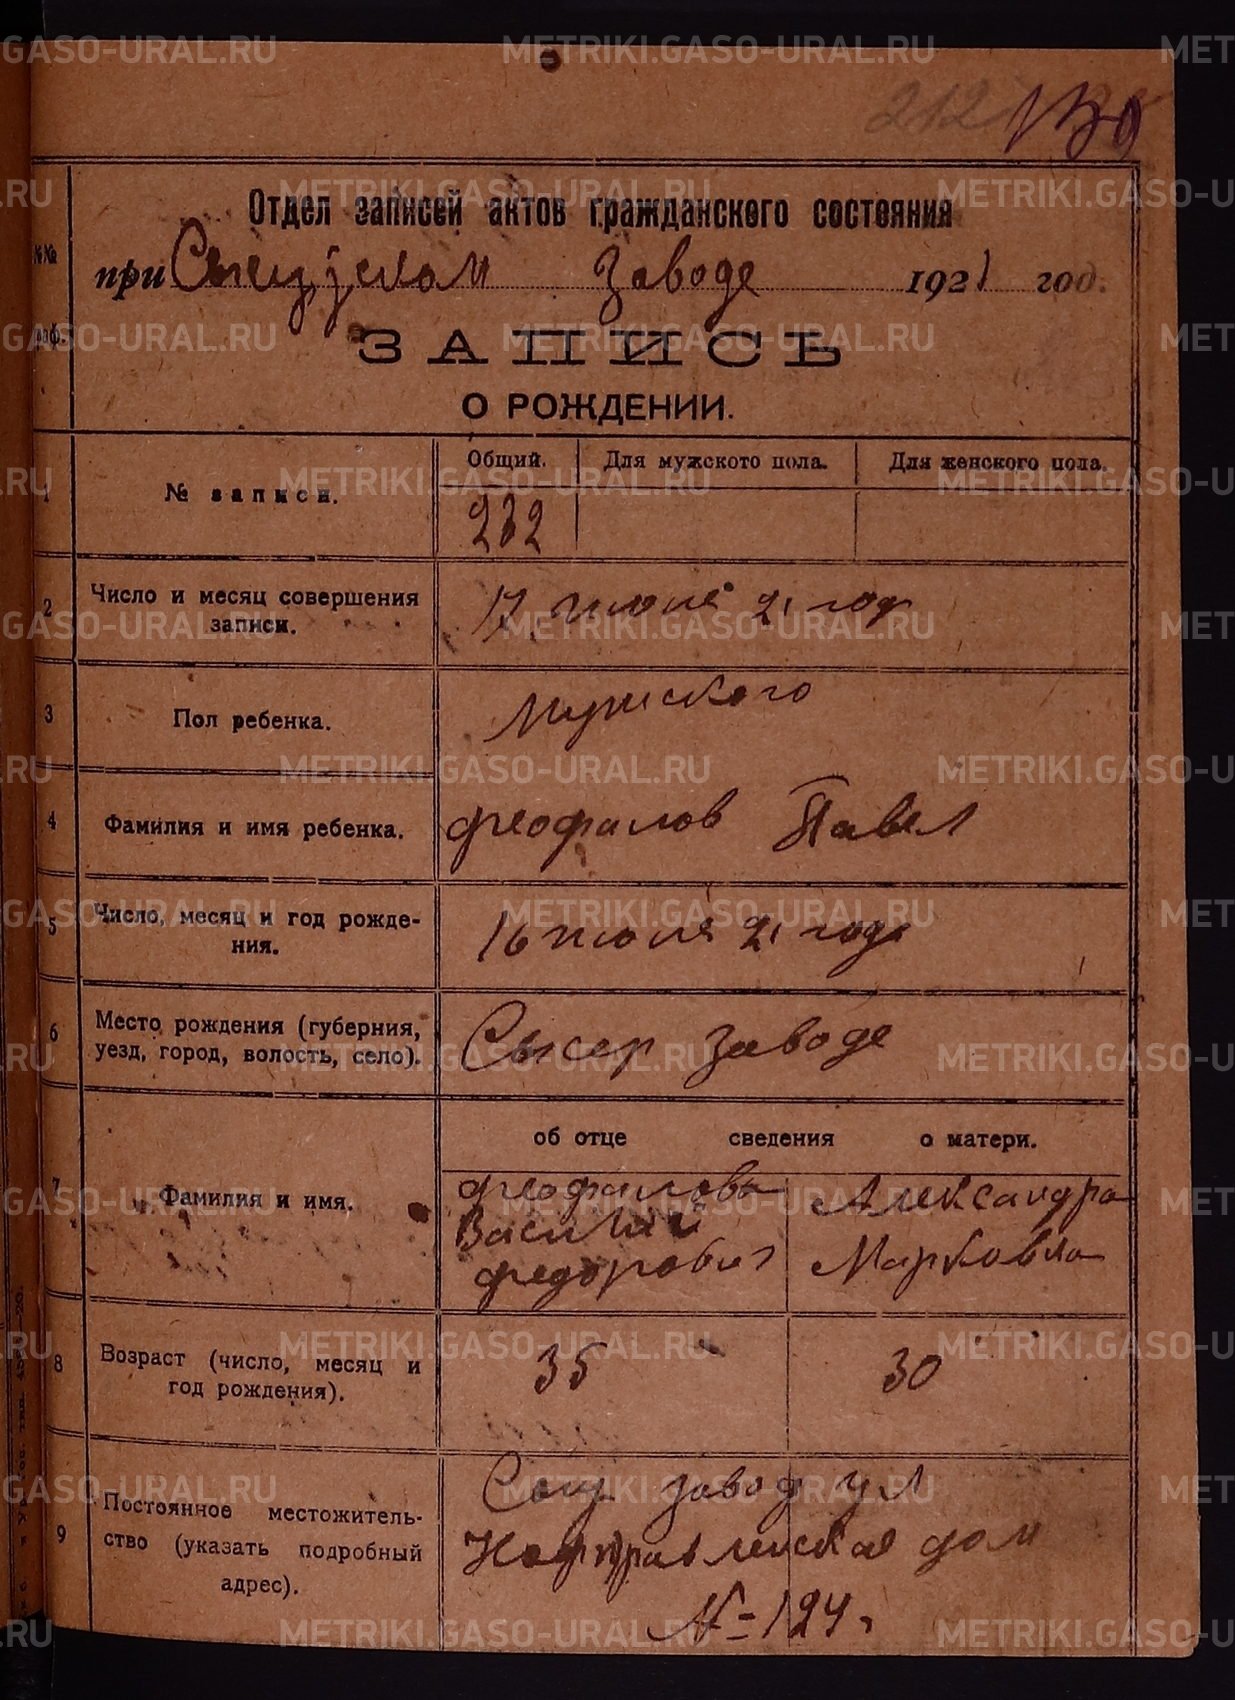 212
Отдел записей актов гражданского состояния
№№
при Заводе 1921 год.
ЗАПИСЬ
О РОЖДЕНИИ.
1 № записи. Общий. Для мужского пола. Для женского пола.
232
2 Число и месяц совершения записи. 17 июня 21 год
3 Пол ребенка. Мужского
4 Фамилия и имя ребенка. Феофилов Павел
5 Число, месяц и год рождения. 16 июня 21 года
6 Место рождения (губерния, уезд, город, волость, село). Сысер Заводе
об отце сведения о матери.
7 Фамилия и имя. Феофилова Александра
Василий Марковна
Федорович
8 Возраст (число, месяц и год рождения). 35 30
9 Постоянное местожительство (указать подробный адрес). завод ул
дом
№-124.
METRIKI.GASO-URAL.RU